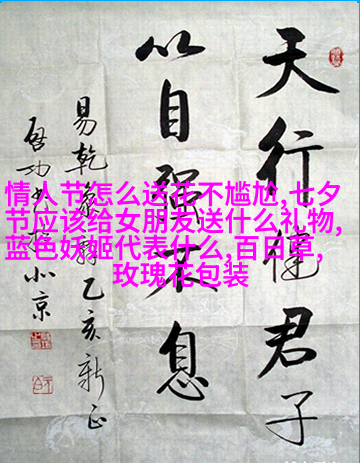 天行健君子
以自强不息
易乾象辞乙亥新正
啟功
北京
情人节怎么送花不尴尬,七夕
节应该给女朋友送什么礼物,
蓝色妖姬代表什么,百日草,
玫瑰花包装